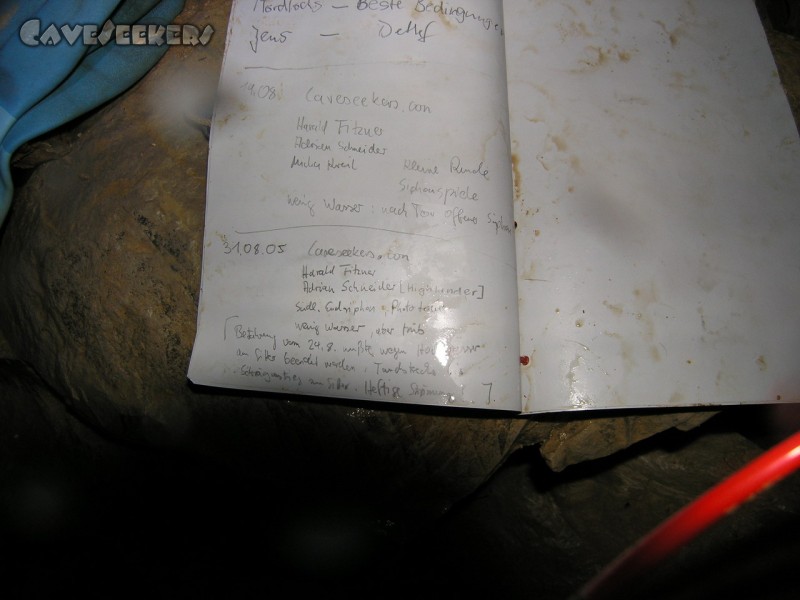 CAVESEEKERS
Mordlochs - Beste Bedingungen
Jens - Detlef
19.08. Caveseekers.com
Harald Fitzner
Adrian Schneider
kleine Runde
Siphonspiele
wenig Wasser: nach Tom offener Siphon
31.08.05 Caveseekers.com
Harald Fitzner
Adrian Schneider [Highlander]
Südl. Endsiphon
wenig Wasser, aber trüb
[Befahrung vom 24.8. mußte wegen
am Siller beendet werden.
am Siller. Heftige Strömung ]